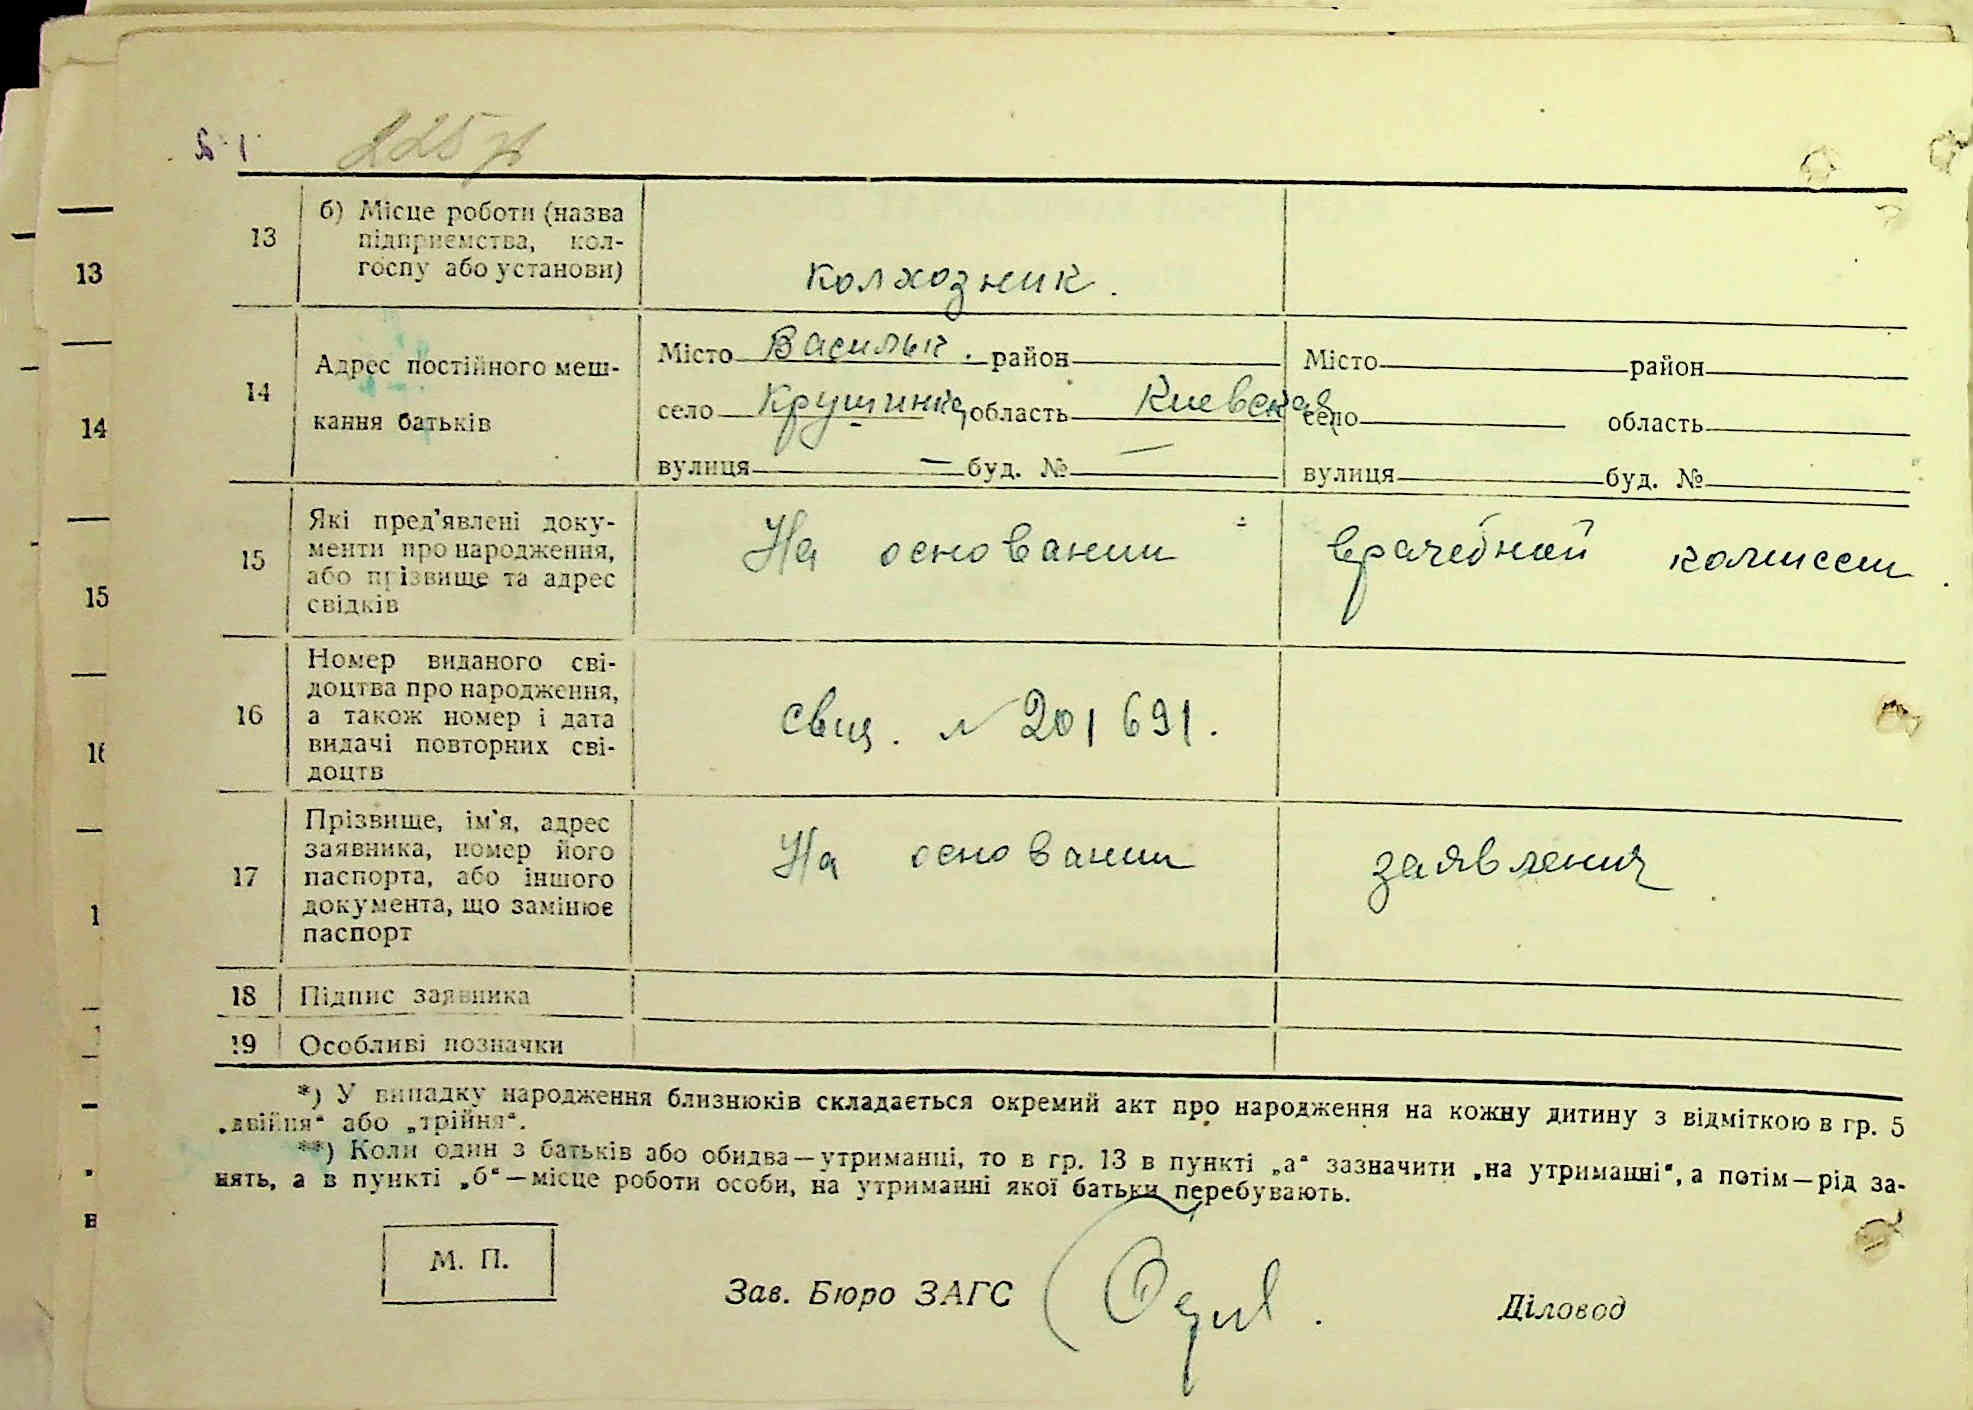 225
13 б) Місце роботи (назва
підприємства, кол-
госпу або установи)
колхозник.
14 Адрес постійного меш-
кання батьків
Місто Васильк. район
село Крушинка, область Киевская
вулиця — буд. № —
Місто район
село область
вулиця буд. №
15 Які пред'явлені доку-
менти про народження,
або прізвище та адрес
свідків
На основании врачебной комиссии
16 Номер виданого сві-
доцтва про народження,
а також номер і дата
видачі повторних сві-
доцтв
свид. № 201691.
17 Прізвище, ім'я, адрес
заявника, номер його
паспорта, або іншого
документа, що замінює
паспорт
На основании заявления
18 Підпис заявника
19 Особливі позначки
*) У випадку народження близнюків складається окремий акт про народження на кожну дитину з відміткою в гр. 5
„двійня“ або „трійня“.
**) Коли один з батьків або обидва—утриманці, то в гр. 13 в пункті „а“ зазначити „на утриманні“, а потім—рід за-
нять, а в пункті „б“—місце роботи особи, на утриманні якої батьки перебувають.
М. П.
Зав. Бюро ЗАГС
Діловод
13
14
15